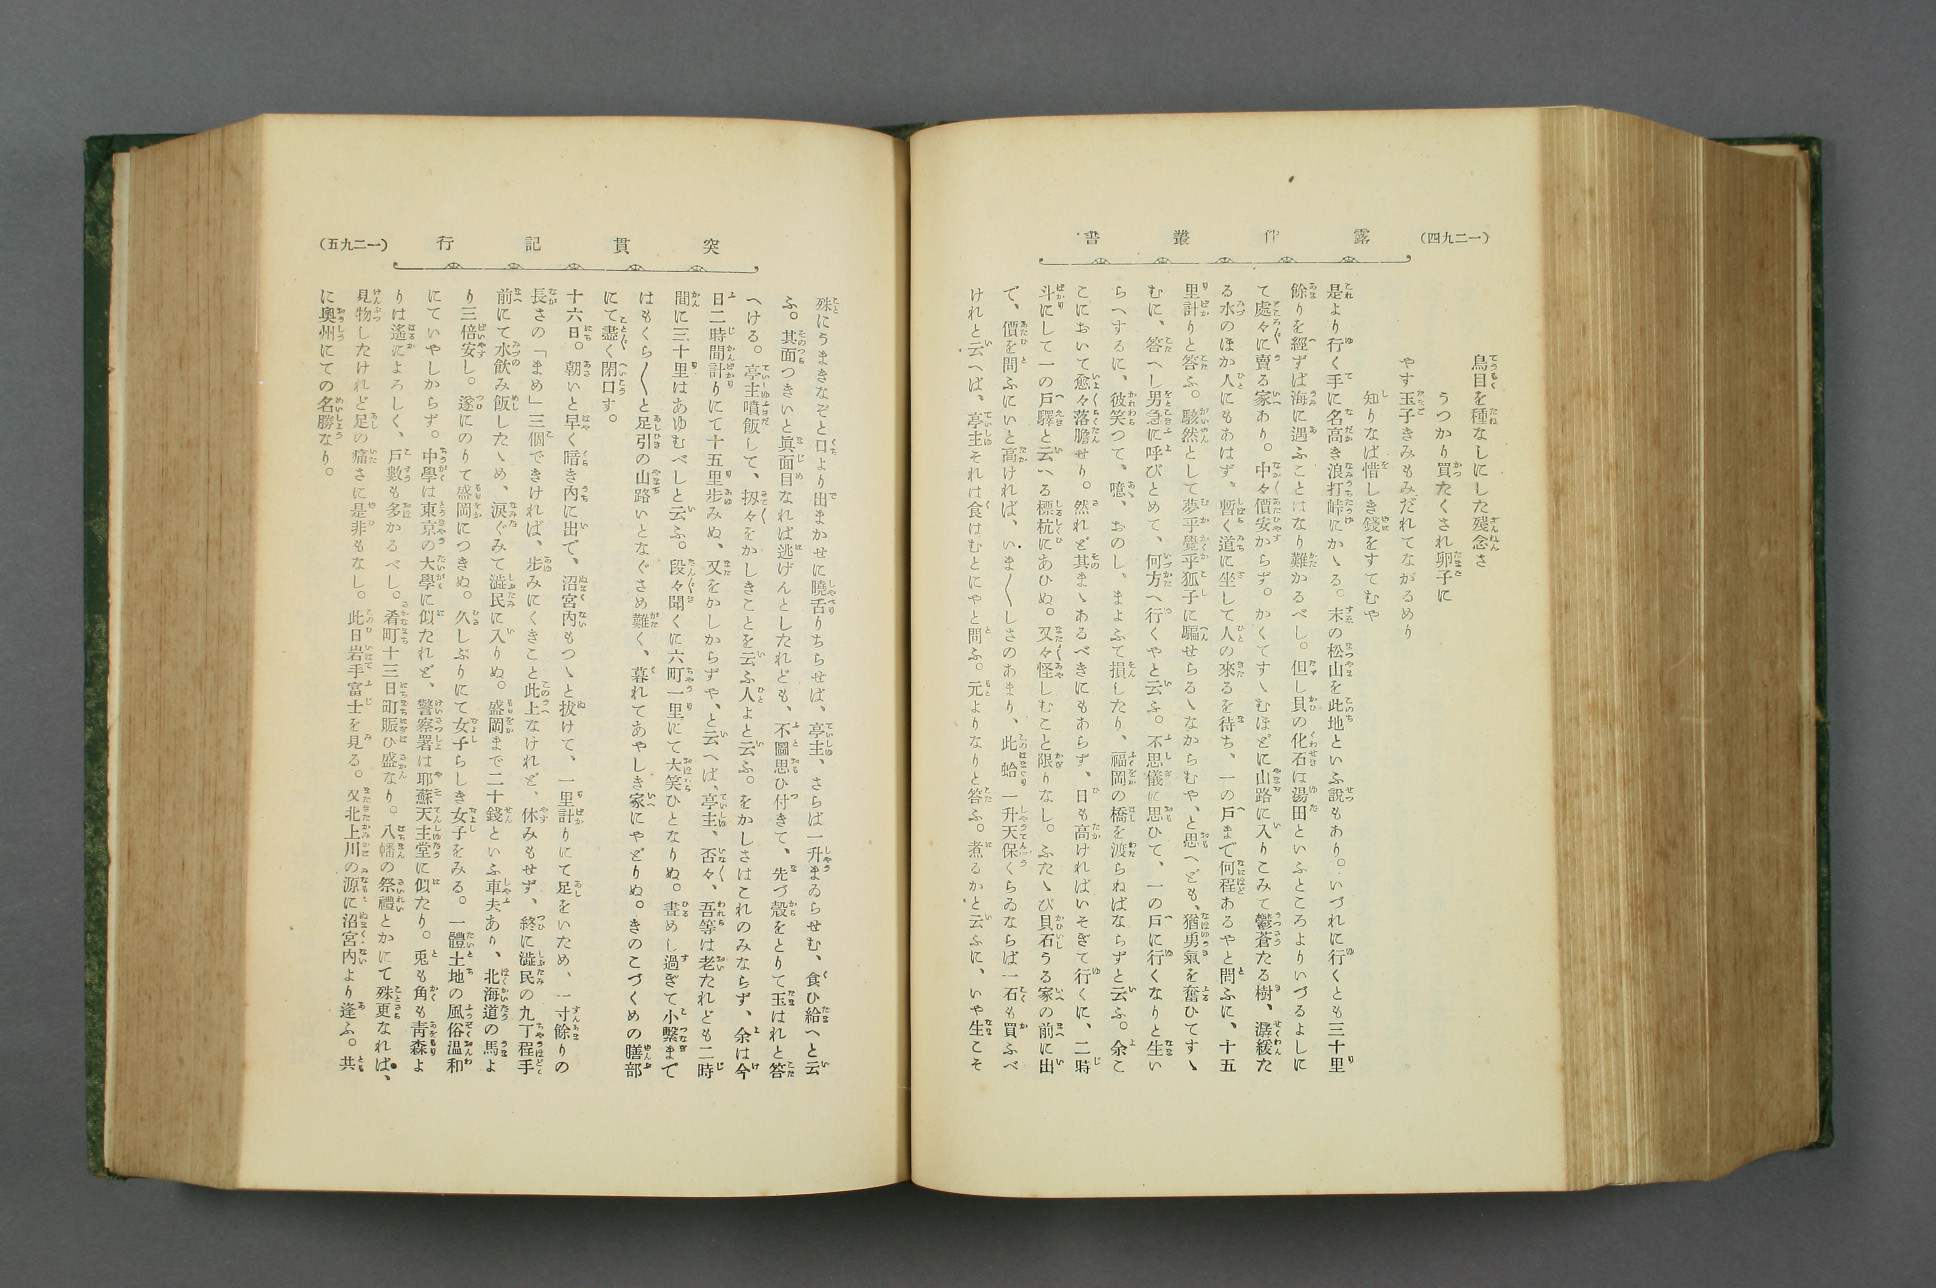 (一二九四)
露伴叢書
鳥目を種なしにした殘念さ
うつかり買たくされ卵子に
やす玉子きみもみだれてながるめり
知りなば惜しき錢をすてむや
是より行く手に名高き浪打峠にかゝる。末の松山を此地といふ説もあり。いづれに行くとも三十里
餘りを經ずば海に遇ふことはなり難かるべし。但し貝の化石は湯田といふところよりいづるよしに
て處々に賣る家あり。中々價安からず。かくてすゝむほどに山路に入りこみて鬱蒼たる樹、潺緩た
る水のほか人にもあはず。暫く道に坐して人の來るを待ち、一の戸まで何程あるやと問ふに、十五
里計りと答ふ。駭然として夢乎覺乎狐子に騙せらるゝなからむや、と思へども、猶勇氣を奮ひてすゝ
むに、答へし男急に呼びとめて、何方へ行くやと云ふ。不思儀に思ひて、一の戸に行くなりと生い
らへするに、彼笑つて、噫、おのし、まよふて損したり、福岡の橋を渡らねばならずと云ふ。余こ
こにおいて愈々落膽せり。然れど其まゝあるべきにもあらず、日も高ければいそぎて行くに、二時
斗にして一の戸驛と云へる標杭にあひぬ。又々怪しむこと限りなし。ふたゝび貝石うる家の前に出
で、價を問ふにいと高ければ、いま〱しさのあまり、此蛤一升天保くらゐならば一石も買ふべ
けれと云へば、亭主それは食はむとにやと問ふ。元よりなりと答ふ。煮るかと云ふに、いや生こそ
突貫記行
(一二九五)
殊にうまきなぞと口より出まかせに饒舌りちらせば、亭主、さらば一升まゐらせむ、食ひ給へと云
ふ。其面つきいと眞面目なれば逃げんとしたれども、不圖思ひ付きて、先づ殼をとりて玉はれと答
へける。亭主噴飯して、扨々をかしきことを云ふ人よと云ふ。をかしさはこれのみならず、余は今
日二時間計りにて十五里歩みぬ、又をかしからずや、と云へば、亭主、否々、吾等は老たれども二時
間に三十里はあゆむべしと云ふ。段々聞くに六町一里にて大笑ひとなりぬ。晝めし過ぎて小繫まで
はもくら〱と足引の山路いとなぐさめ難く、暮れてあやしき家にやどりぬ。きのこづくめの膳部
にて盡く閉口す。
十六日。朝いと早く暗き内に出で、沼宮内もつゝと拔けて、一里計りにて足をいため、一寸餘りの
長さの「まめ」三個できければ、歩みにくきこと此上なけれど、休みもせず、終に澁民の九丁程手
前にて水飲み飯したゝめ、涙ぐみて澁民に入りぬ。盛岡まで二十錢といふ車夫あり、北海道の馬よ
り三倍安し。遂にのりて盛岡につきぬ。久しぶりにて女子らしき女子をみる。一體土地の風俗温和
にていやしからず。中學は東京の大學に似たれど、警察署は耶蘇天主堂に似たり。兎も角も靑森よ
りは遙によろしく、戸數も多かるべし。肴町十三日町賑ひ盛なり。八幡の祭禮とかにて殊更なれば、
見物したけれど足の痛さに是非もなし。此日岩手富士を見る。又北上川の源に沼宮内より逢ふ。共
に奧州にての名勝なり。